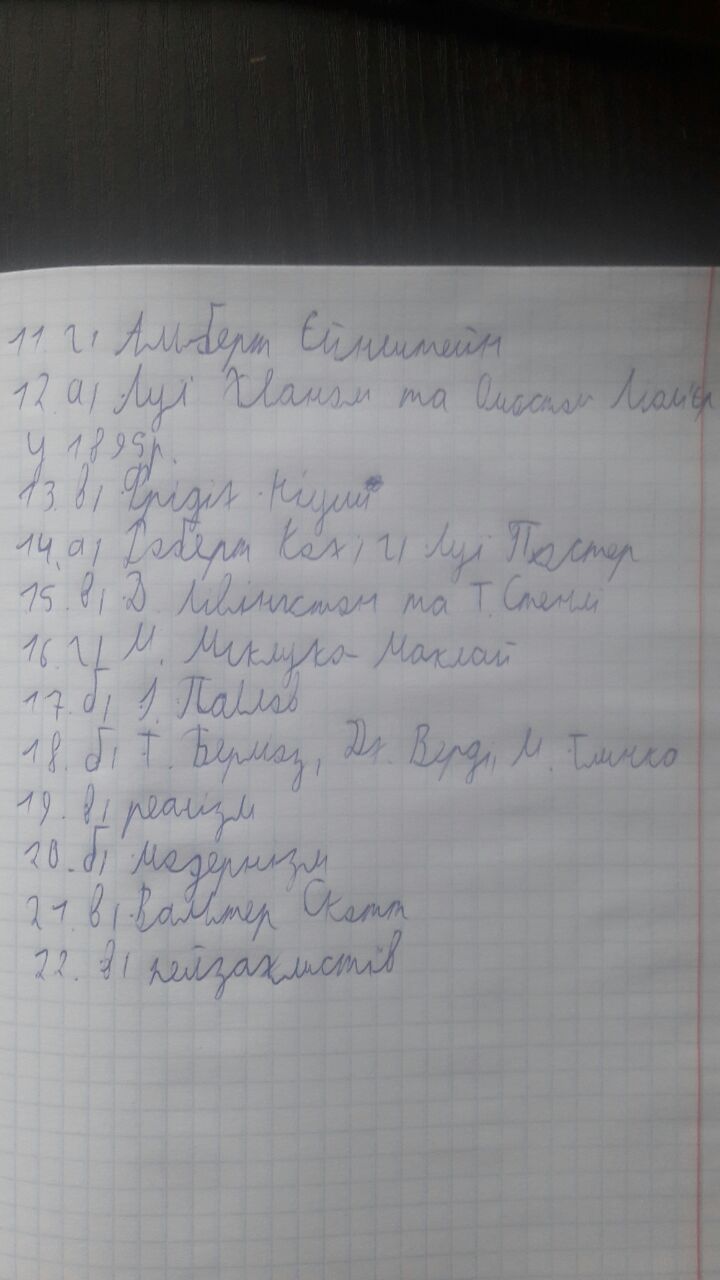 11. г) Альберт Єйнштейн
12. а) Луї Жан та Люм'єр
у 1895р.
13. в) Фрідіх Ніцше
14. а) Роберт Кох; г) Луї Пастер
15. в) Д. Лівінгстон та Т. Стенлі
16. г) М. Миклухо-Маклай
17. б) І. Павлов
18. б) Г. Берліоз, Дж. Верді, М. Глинка
19. в) реалізм
20. б) модернізм
21. в) Вальтер Скотт
22. в) пейзажистів